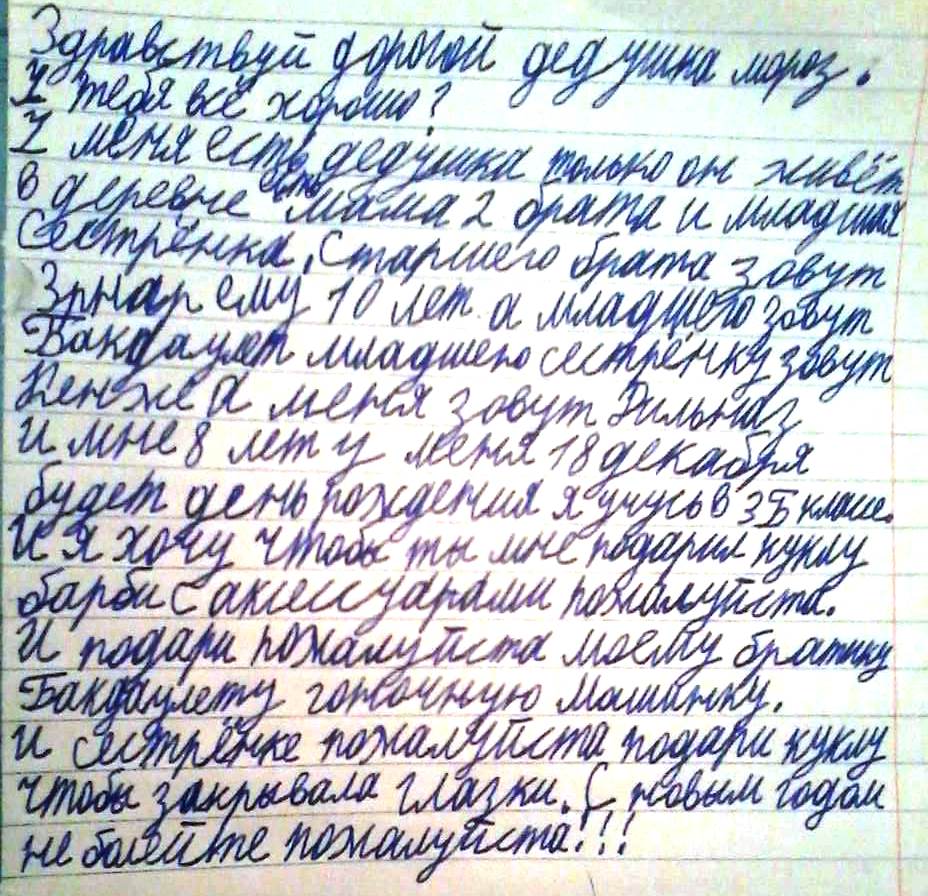 Здравствуй дорогой дедушка мороз.
У тебя всё хорошо?
У меня есть дедушка только он живёт
в деревне есть мама 2 брата и младшая
Сестрёнка. Старшего брата зовут
Зрнар ему 10 лет а младшего зовут
Бакдаулет младшею сестрёнку зовут
Кенже а меня зовут Дильназ
и мне 8 лет у меня 18 декабря
будет день рождения я учусь в 3Б классе.
И я хочу чтобы ты мне подарил куклу
барби с аксессуарами пожалуйста.
И подари пожалуйста моему братику
Бакдаулету гоночную машинку.
и сестрёнке пожалуйста подари куклу
чтобы закрывала глазки. С новым годом
не болейте пожалуйста!!!